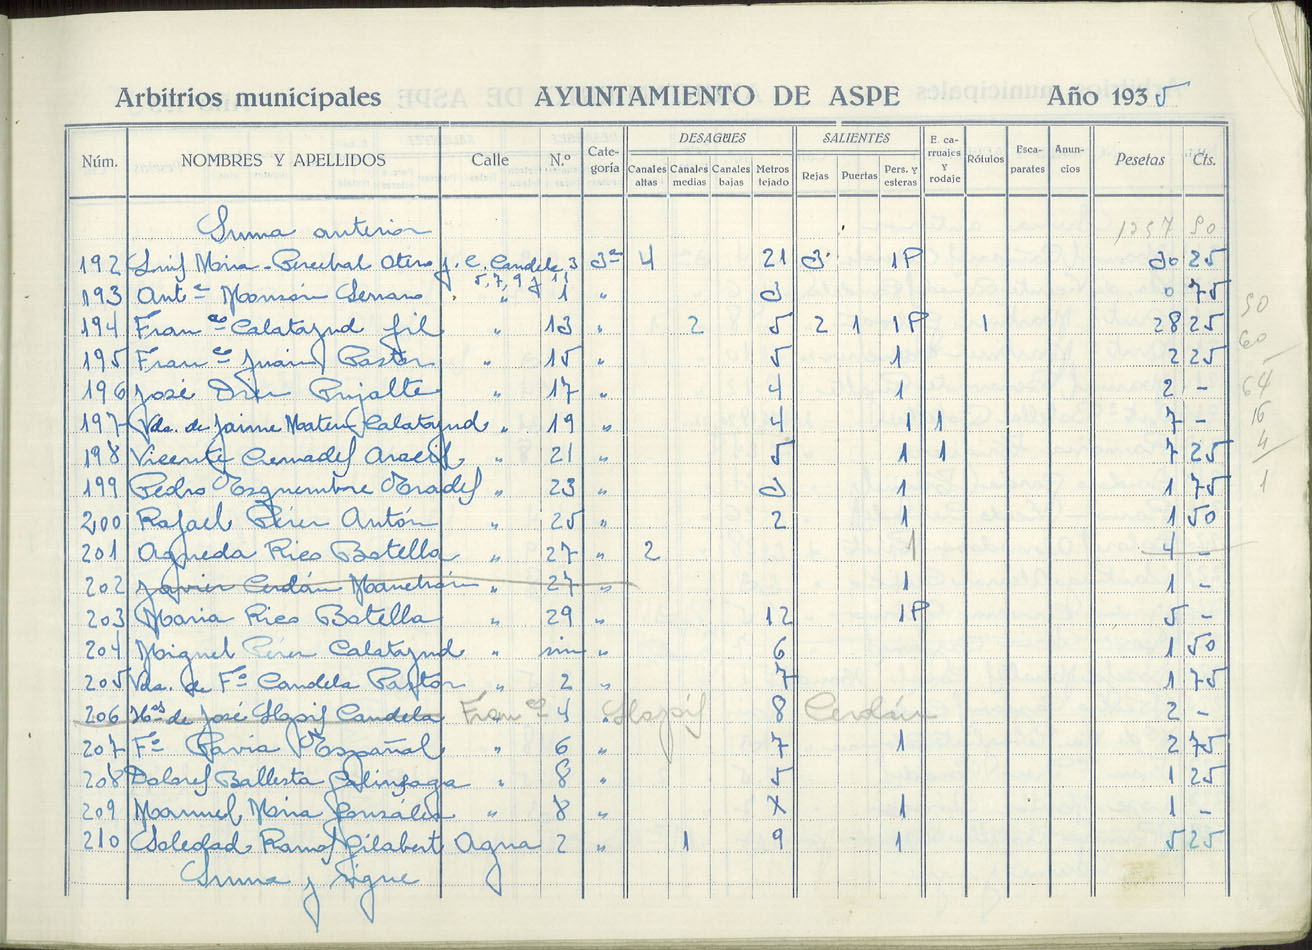 Arbitrios municipales AYUNTAMIENTO DE ASPE Año 1935
Núm. NOMBRES Y APELLIDOS Calle N.º Cate-goría DESAGÜES Canales altas Canales medias Canales bajas Metros tejado SALIENTES Rejas Puertas Pers. y esteras E. ca-rruajes y rodaje Rótulos Esca-parates Anun-cios Pesetas Cts.
Suma anterior 1257 50
192 Luis Mira-Percebal Otero J. C. Candela 3 3ª 4 21 3 1P 30 25
5, 7, 9 y 11
193 Antº Monzón Serrano " 1 " 3 0 75
194 Franco Calatayud Gil " 13 " 2 5 2 1 1P 1 28 25
195 Franco Juan Pastor " 15 " 5 1 2 25
196 José Díez Pujalte " 17 " 4 1 2 -
197 Vda. de Jaime Mateu Calatayud " 19 " 4 1 1 7 -
198 Vicente Cremades Aracil " 21 " 5 1 1 7 25
199 Pedro Esquembre Mrades " 23 " 3 1 1 75
200 Rafael Pérez Antón " 25 " 2 1 1 50
201 Agueda Rico Botella " 27 " 2 1 4 -
202 Javier Cerdán Manchón " 27 " 1 1 -
203 María Rico Botella " 29 " 12 1P 5 -
204 Miguel Pérez Calatayud " sin " 6 1 50
205 Vda. de Fº Candela Pastor " 2 " 7 1 75
206 Hos de José Alzpis Candela 4 " 8 2 -
Franco Cerdán
207 Fº Pavia Español " 6 " 7 1 2 75
208 Dolores Ballesta Galinsoga " 8 " 5 1 25
209 Manuel Mira González " 8 " X 1 1 -
210 Soledad Ramos Gilabert Agua 2 " 1 9 1 5 25
Suma y sigue
50
60
64
16
4
1